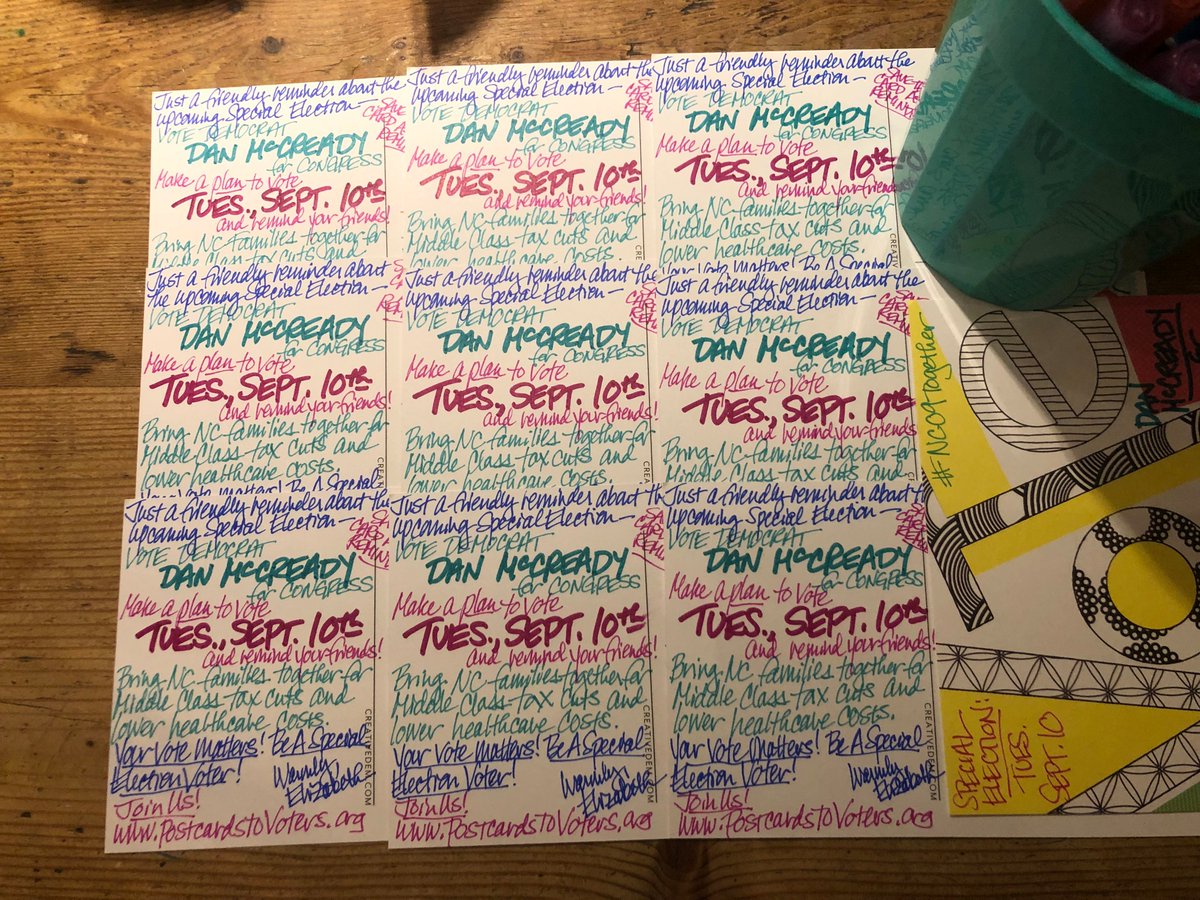 Just a friendly reminder about the
upcoming Special Election —
VOTE DEMOCRAT
DAN McCREADY
for CONGRESS
Make a plan to Vote
TUES., SEPT. 10th
and remind your friends!
Bring NC families together for
Class tax cuts and
Just a friendly reminder about the
upcoming Special Election —
VOTE DEMOCRAT
DAN McCREADY
for CONGRESS
Make a plan to Vote
TUES., SEPT. 10th
and remind your friends!
Bring NC families together for
Middle Class tax cuts and
lower healthcare costs.
Just a friendly reminder about the
upcoming Special Election —
VOTE DEMOCRAT
DAN McCREADY
for CONGRESS
Make a plan to Vote
TUES., SEPT. 10th
and remind your friends!
Bring NC families together for
Middle Class tax cuts and
lower healthcare costs.
Your Vote Matters! Be A Special
Just a friendly reminder about
the upcoming Special Election —
VOTE DEMOCRAT
DAN McCREADY
for CONGRESS
Make a plan to Vote
TUES., SEPT. 10th
and remind your friends!
Bring NC families together for
Middle Class tax cuts and
lower healthcare costs.
Your Vote Matters! Be A Special
Just a friendly reminder about the
upcoming Special Election —
VOTE DEMOCRAT
DAN McCREADY
for CONGRESS
Make a plan to Vote
TUES., SEPT. 10th
and remind your friends!
Bring NC families together for
Middle Class tax cuts and
lower healthcare costs.
Just a friendly reminder about the
upcoming Special Election —
VOTE DEMOCRAT
DAN McCREADY
for CONGRESS
Make a plan to Vote
TUES., SEPT. 10th
and remind your friends
Bring NC families together for
Middle Class tax cuts and
lower healthcare costs.
Just a friendly reminder about the
upcoming Special Election —
VOTE DEMOCRAT
DAN McCREADY
for CONGRESS
Make a plan to Vote
TUES., SEPT. 10th
and remind your friends!
Bring NC families together for
Middle Class tax cuts and
lower healthcare costs.
Your Vote Matters! Be A Special
Election Voter!
Warmly,
Elizabeth
Join Us!
www.PostcardsToVoters.org
CREATIVEDEM.COM
Just a friendly reminder about the
upcoming Special Election —
VOTE DEMOCRAT
DAN McCREADY
for CONGRESS
Make a plan to Vote
TUES., SEPT. 10th
and remind your friends!
Bring NC families together for
Middle Class tax cuts and
lower healthcare costs.
Your Vote Matters! Be A Special
Election Voter!
Warmly,
Elizabeth
Join Us!
www.PostcardsToVoters.org
CREATIVEDEM.COM
Just a friendly reminder about the
upcoming Special Election —
VOTE DEMOCRAT
DAN McCREADY
for CONGRESS
Make a plan to Vote
TUES., SEPT. 10th
and remind your friends!
Bring NC families together for
Middle Class tax cuts and
lower healthcare costs.
Your Vote Matters! Be A Special
Election Voter!
Warmly,
Elizabeth
Join Us!
www.PostcardsToVoters.org
CREATIVEDEM.COM
#NC09Together
DAN
McCREADY
SPECIAL
ELECTION:
TUES.
SEPT. 10